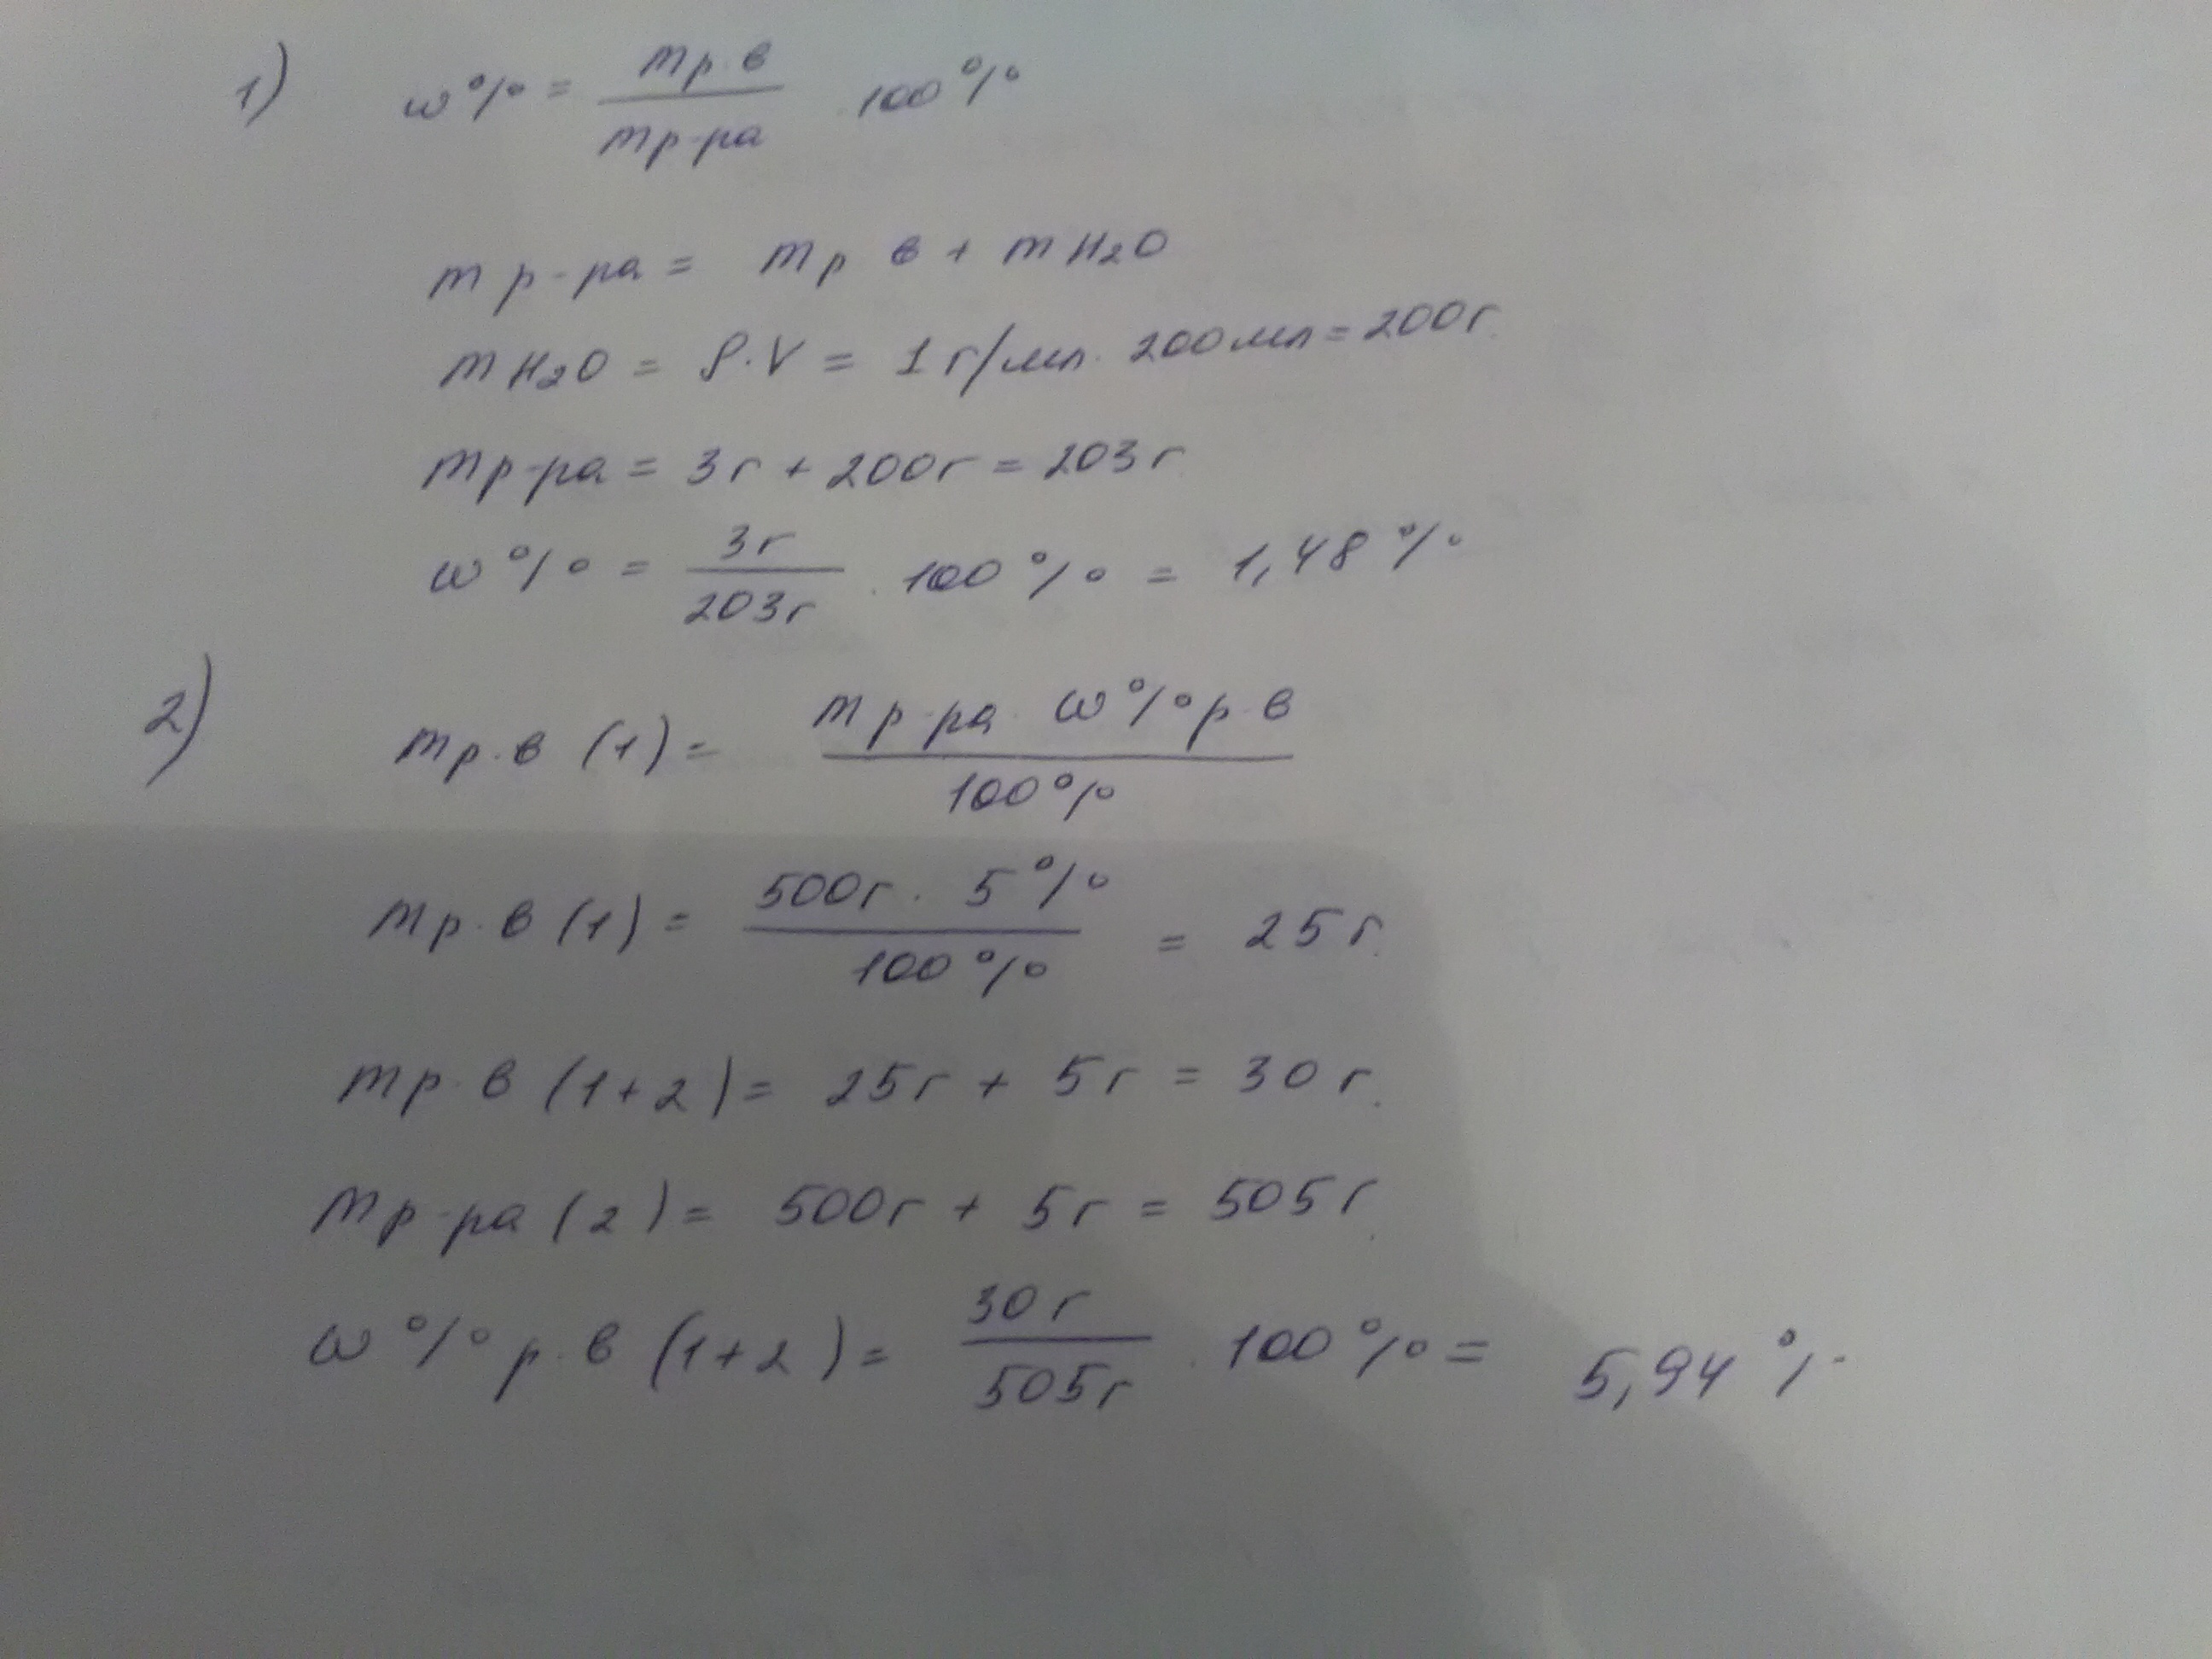 1) ω% = mр.в / mр-ра · 100%
mр-ра = mр в + mH₂O
mH₂O = ρ·V = 1 г/мл · 200мл = 200г.
mр-ра = 3г + 200г = 203г
ω% = 3г / 203г · 100% = 1,48%
2) mр.в (1) = mр-ра · ω%р.в / 100%
mр.в (1) = 500г · 5% / 100% = 25г.
mр.в (1+2) = 25г + 5г = 30г.
mр-ра (2) = 500г + 5г = 505г.
ω% р.в (1+2) = 30г / 505г · 100% = 5,94%